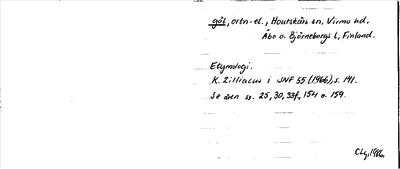 göl, ortn-el., Houtskärs sn, Virmo hd,
Åbo o. Björneborgs l, Finland.
Etymologi.
K. Zilliacus i SNF 55 (1966), s. 141.
Se även ss. 25, 30, 33f, 154 o. 159.
CLg, 1986.